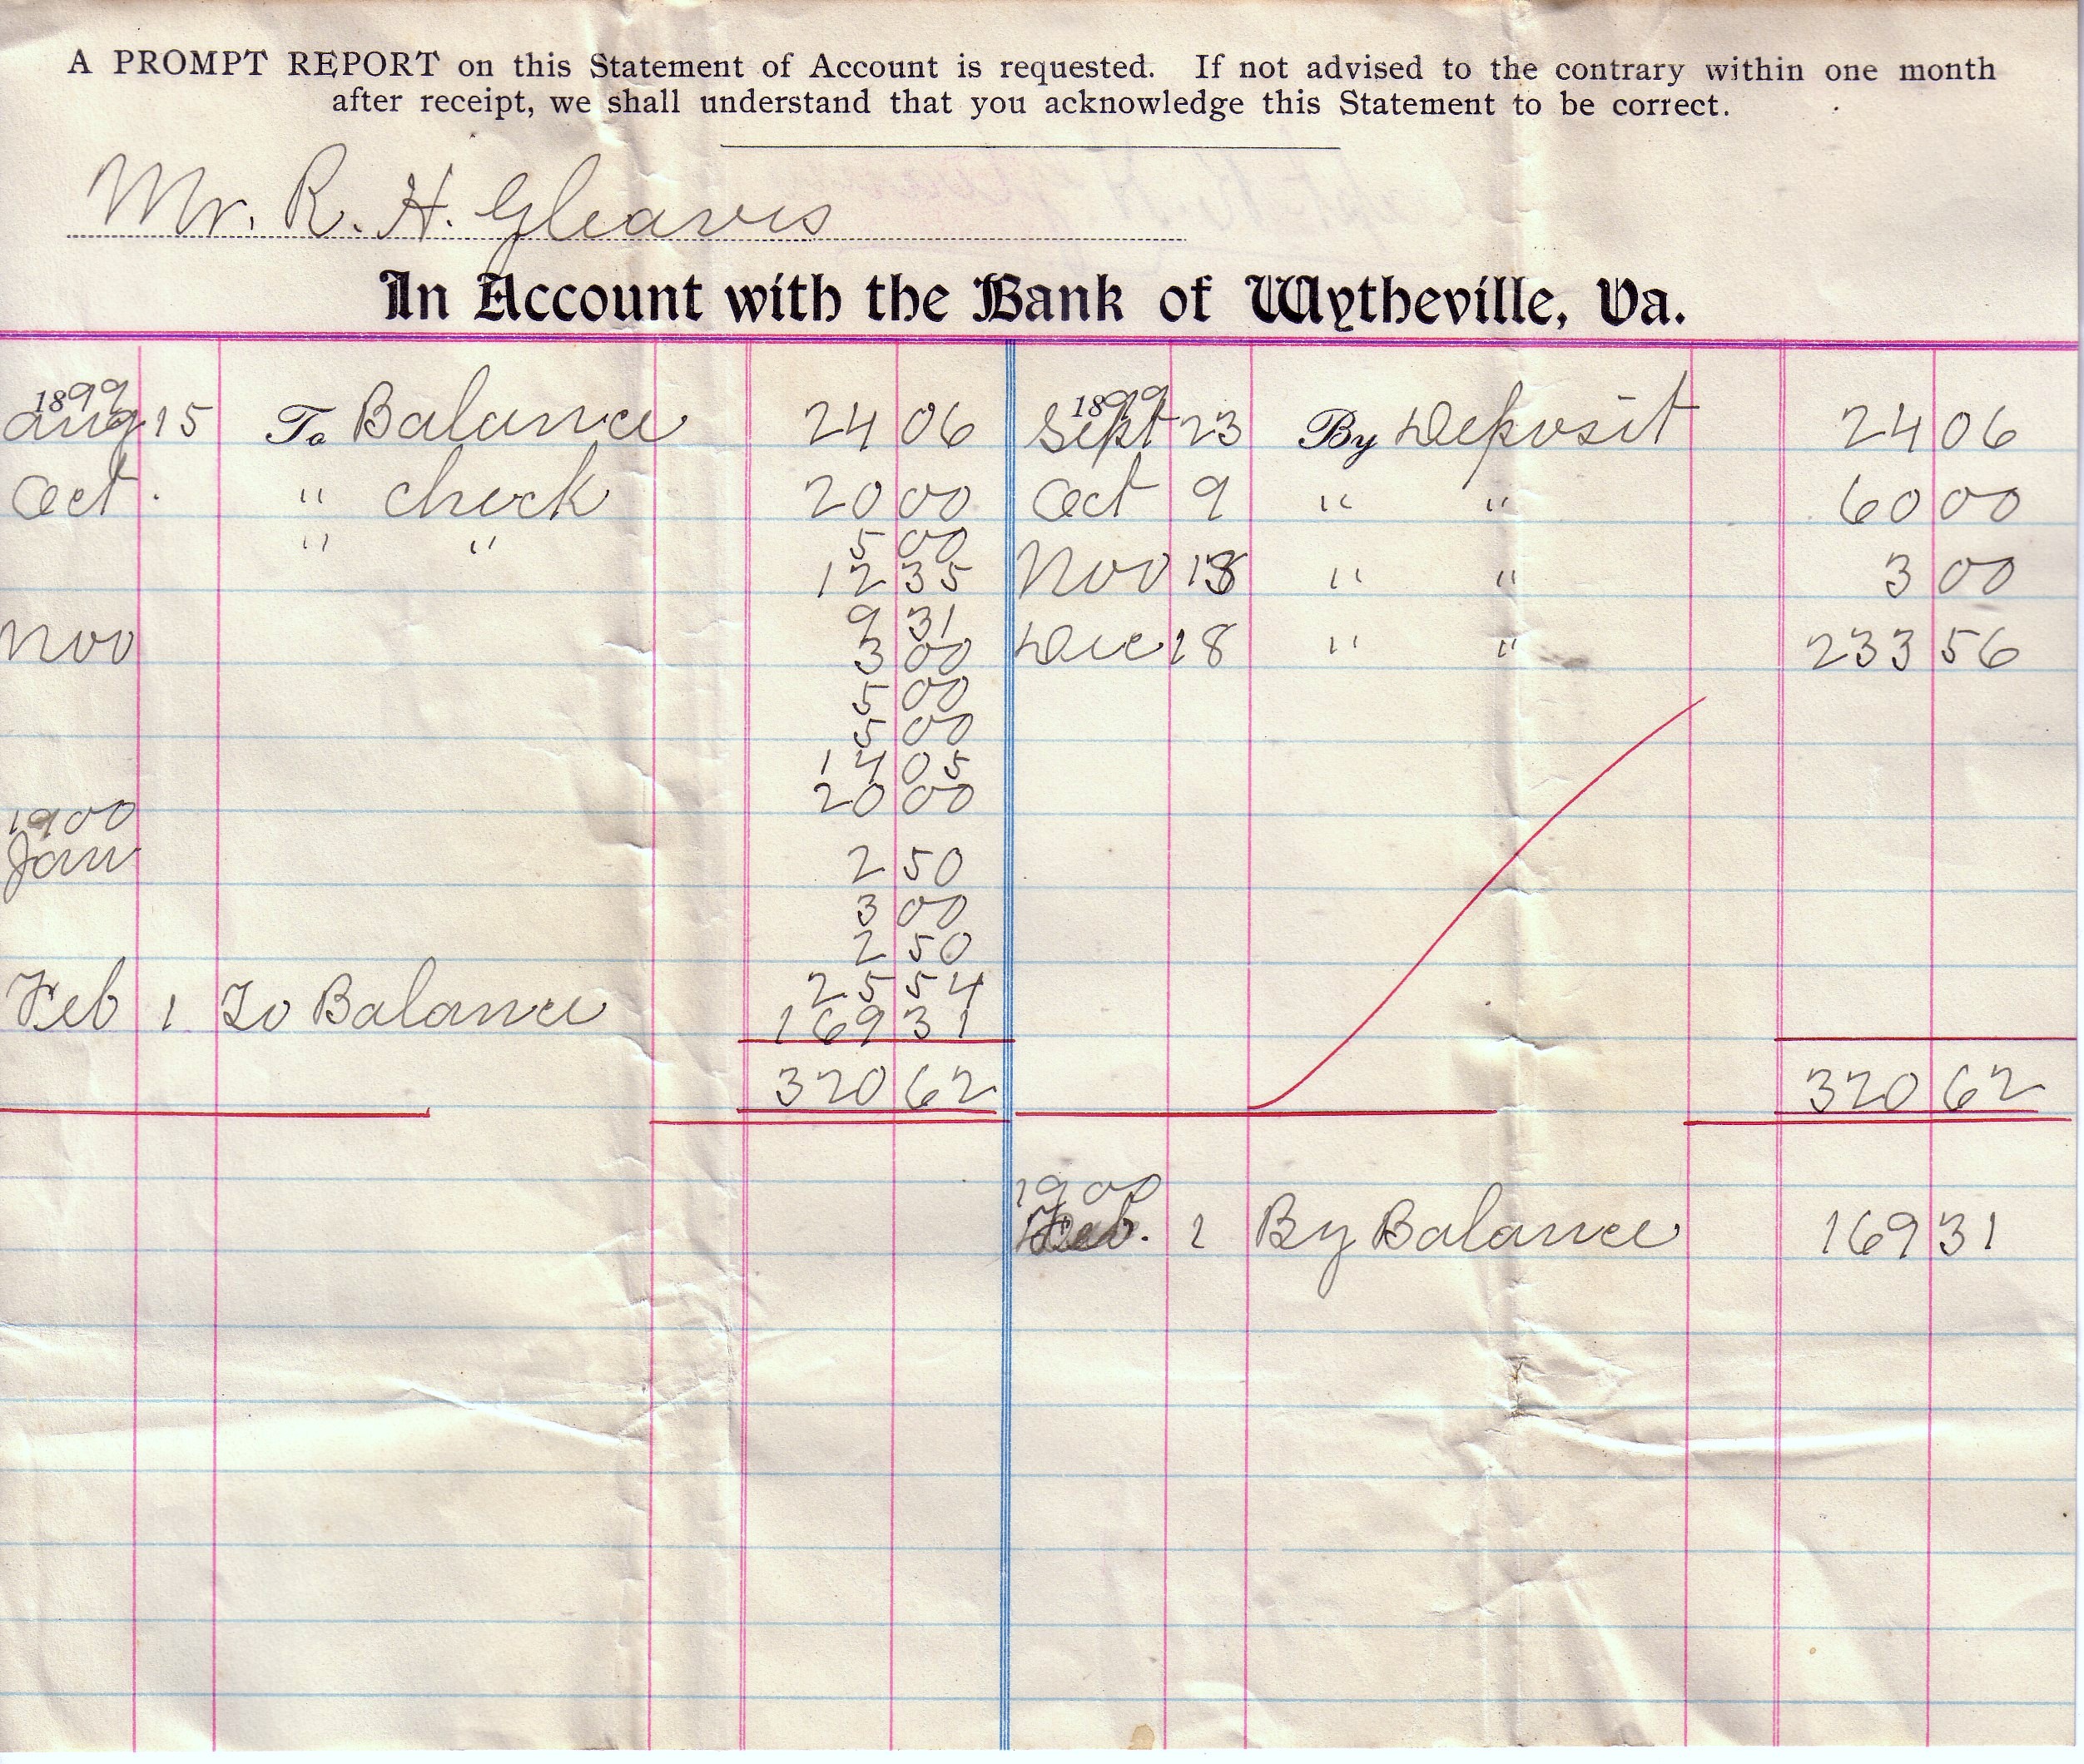 A PROMPT REPORT on this Statement of Account is requested. If not advised to the contrary within one month
after receipt, we shall understand that you acknowledge this Statement to be correct.
Mr. R. H. Gleaves
In Account with the Bank of Wytheville, Va.
1899 1899
Aug 15 To Balance 24 06 Sept 23 By Deposit 24 06
Oct. " Check 20 00 Oct 9 " " 60 00
" " 5 00
12 35 Nov 18 " " 3 00
9 31
Nov 3 00 Dec 18 " " 233 56
5 00
5 00
14 05
20 00
1900
Jan 2 50
3 00
2 50
25 54
Feb 1 To Balance 169 31
320 62 320 62
1900
Feb. 1 By Balance 169 31